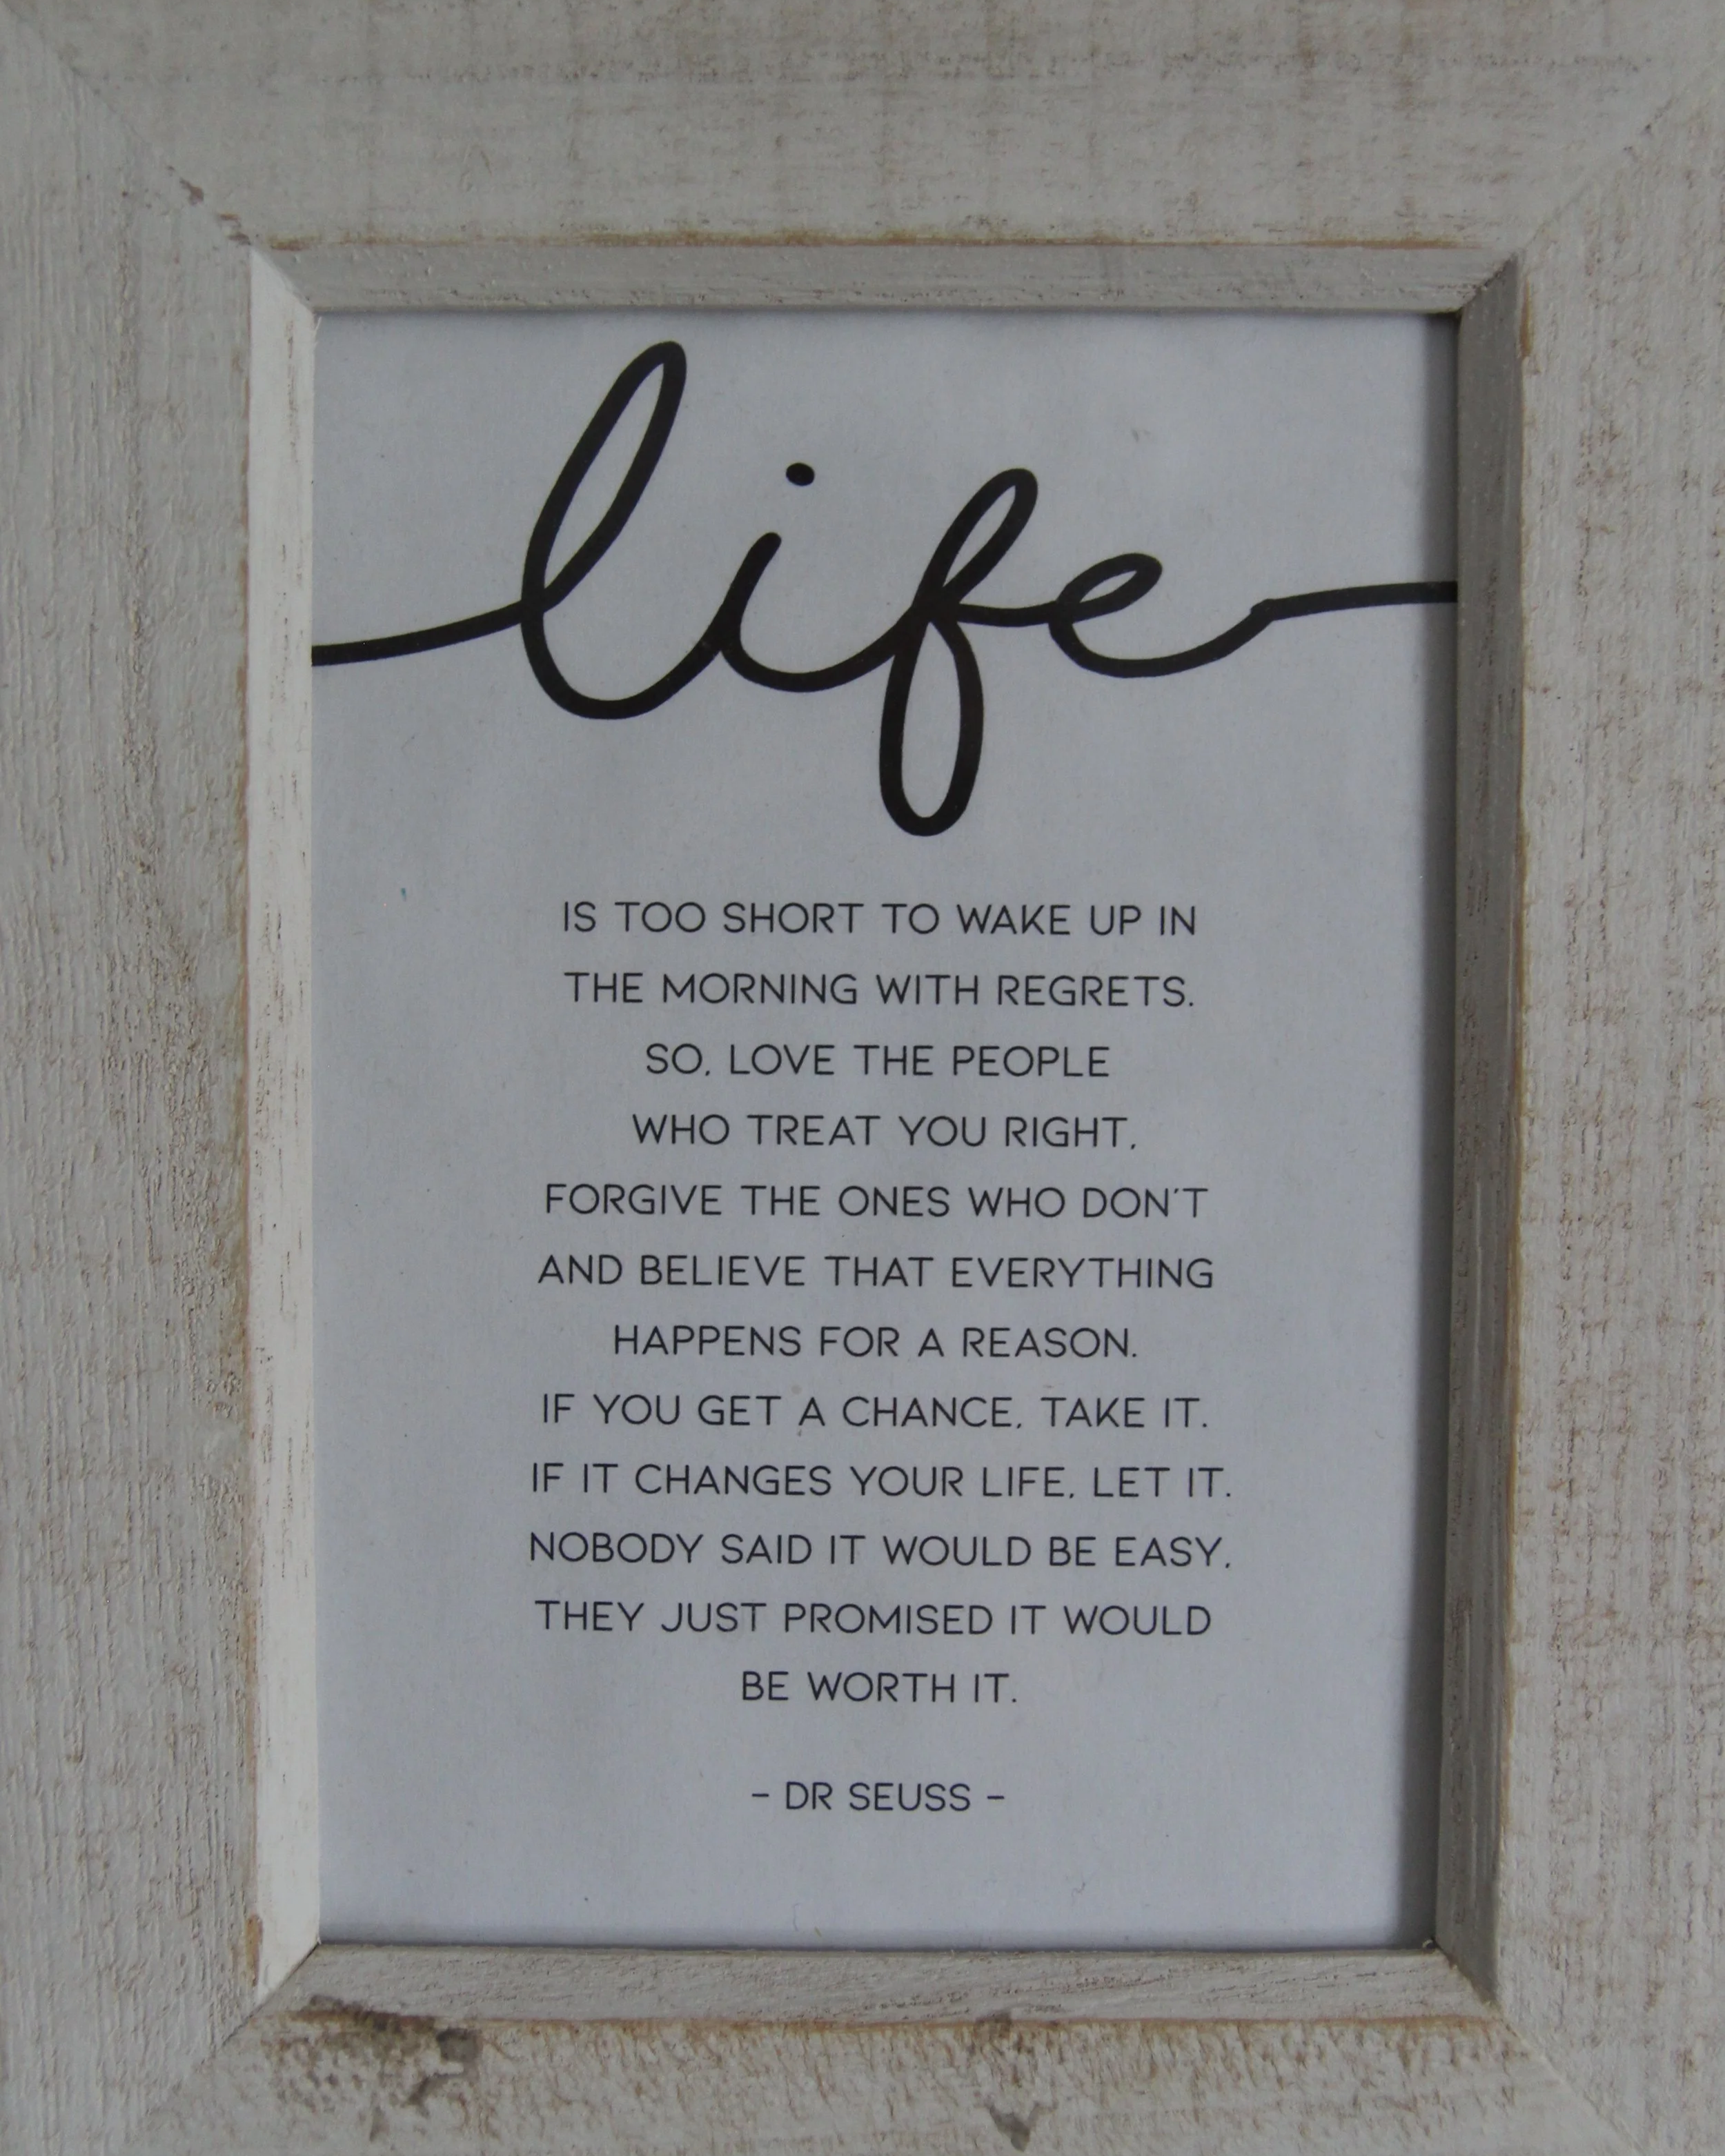 life
IS TOO SHORT TO WAKE UP IN
THE MORNING WITH REGRETS.
SO, LOVE THE PEOPLE
WHO TREAT YOU RIGHT,
FORGIVE THE ONES WHO DON'T
AND BELIEVE THAT EVERYTHING
HAPPENS FOR A REASON.
IF YOU GET A CHANCE, TAKE IT.
IF IT CHANGES YOUR LIFE, LET IT.
NOBODY SAID IT WOULD BE EASY,
THEY JUST PROMISED IT WOULD
BE WORTH IT.
- DR SEUSS -